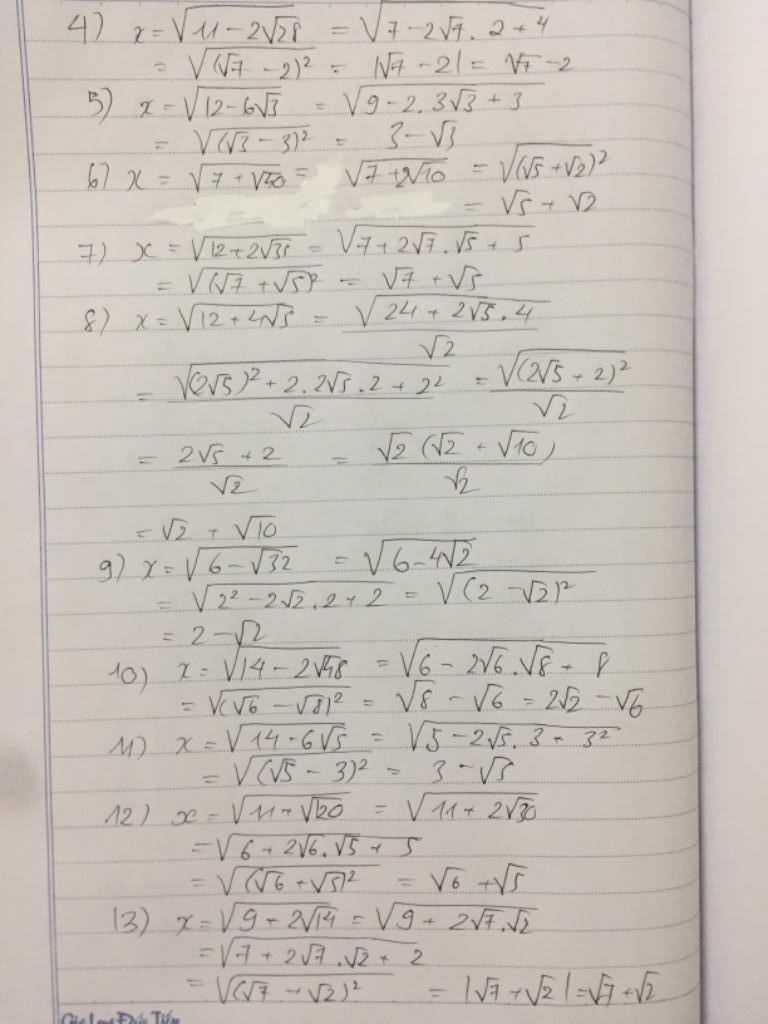 4) x = √(11 - 2√28) = √(7 - 2√7 . 2 + 4)
= √((√7 - 2)²) = |√7 - 2| = √7 - 2
5) x = √(12 - 6√3) = √(9 - 2 . 3√3 + 3)
= √((√3 - 3)²) = 3 - √3
6) x = √(7 + √40) = √(7 + 2√10) = √((√5 + √2)²)
= √5 + √2
7) x = √(12 + 2√35) = √(7 + 2√7 . √5 + 5)
= √((√7 + √5)²) = √7 + √5
8) x = √(12 + 4√5) = √(24 + 2√5 . 4) / √2
= √((2√5)² + 2 . 2√5 . 2 + 2²) / √2 = √((2√5 + 2)²) / √2
= (2√5 + 2) / √2 = √2 (√2 + √10) / √2
= √2 + √10
9) x = √(6 - √32) = √(6 - 4√2)
= √(2² - 2√2 . 2 + 2) = √((2 - √2)²)
= 2 - √2
10) x = √(14 - 2√48) = √(6 - 2√6 . √8 + 8)
= √((√6 - √8)²) = √8 - √6 = 2√2 - √6
11) x = √(14 - 6√5) = √(5 - 2√5 . 3 + 3²)
= √((√5 - 3)²) = 3 - √5
12) x = √(11 + √120) = √(11 + 2√30)
= √(6 + 2√6 . √5 + 5)
= √((√6 + √5)²) = √6 + √5
13) x = √(9 + 2√14) = √(9 + 2√7 . √2)
= √(7 + 2√7 . √2 + 2)
= √((√7 + √2)²) = |√7 + √2| = √7 + √2